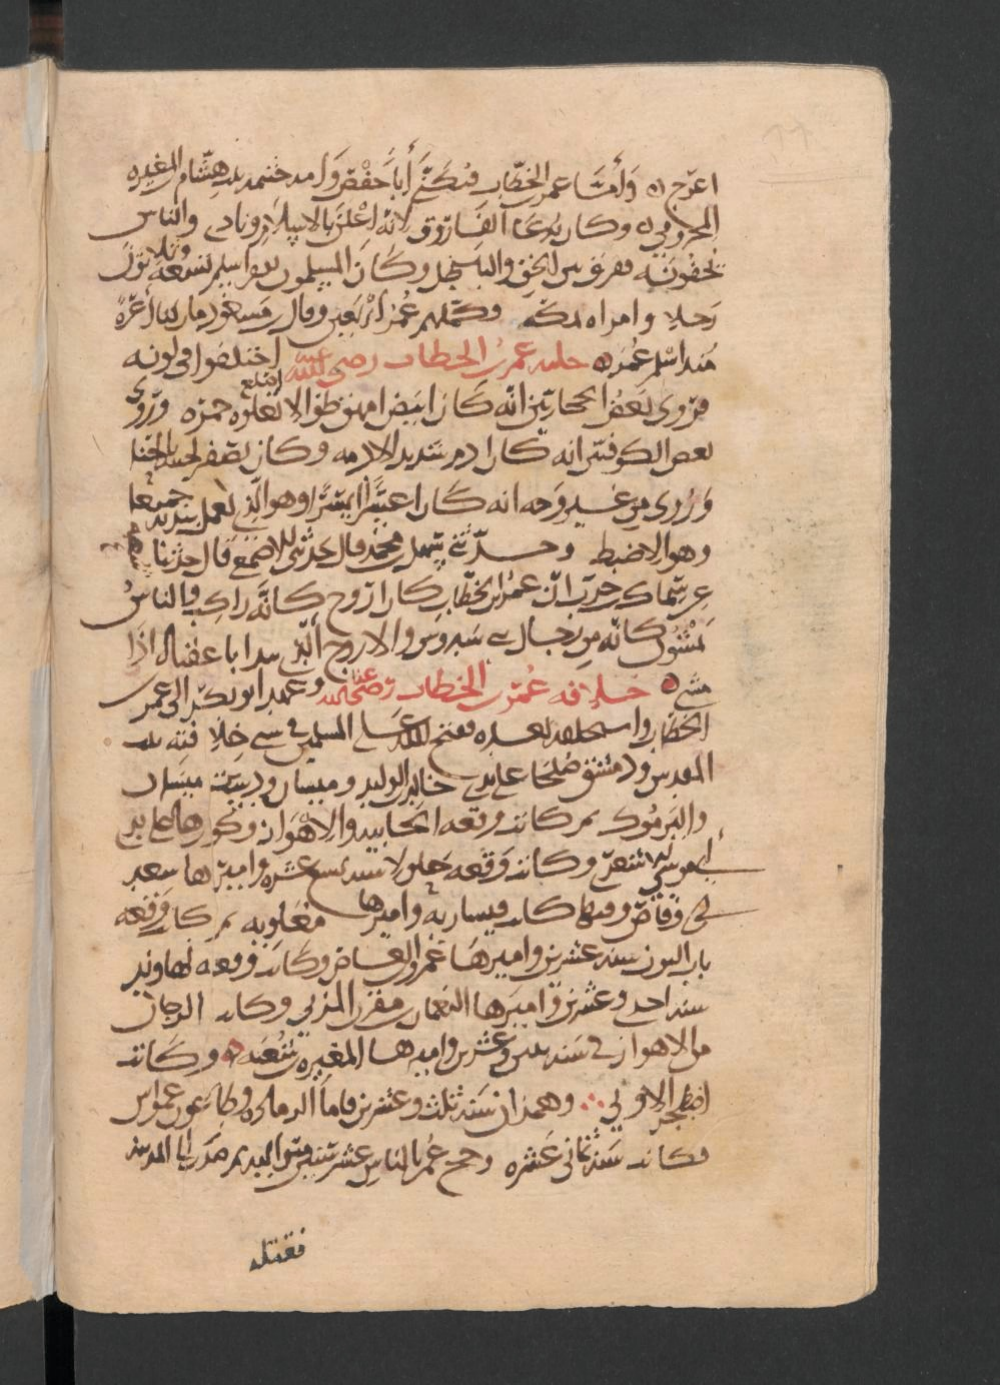 اعرج ۞ وأما عمر بن الخطاب فيكنى أبا حفص وأمه حنتمه بنت هشام المغيره
المخزومي ۞ وكان يدعا الفاروق لانه اعلن بالاسلام ونادى والناس
يخفونه ففرق بين الحق والباطل وكان المسلمون يوم اسلم تسعة وثلاثون
رجلا وامراه بمكه وكملهم عمر اربعين وقال بن مسعود ما زلنا أعزة
منذ اسلم عمر ۞ حليه عمر بن الخطاب رضى الله عنه اختلفوا في لونه
فروى بعض الحجازيين انه كان ابيض امهق طوالا اصلع تعلوه حمره وروى
بعض الكوفيين انه كان ادم شديد الادمه وكان يصفر لحيته بالحنا
وروى من غير وجه انه كان اعسر ايسر وهو الذي يعمل بيديه جميعا
وهو الاضبط وحدثني سهل بن محمد قال حدثني الاصمعي قال حدثنا
عن سماك بن حرب ان عمر بن الخطاب كان اروح كانه راكب والناس
يمشون كانه من رجال بني سدوس والاروح الذي يتدانا عقباه اذا
مشى ۞ خلافه عمر بن الخطاب رضى الله عنه وعهد ابو بكر الى عمر بن
الخطاب واستخلفه بعده ففتح الله على المسلمين في سني خلافته بيت
المقدس ودمشق صلحا على يدي خالد بن الوليد وميسان ودستميسان
واليرموك ثم كانت وقعه الجابيه والاهواز وكورها على يد
أبي موسى الاشعري وكانت وقعه جلولا سنه تسع عشره واميرها سعد
بن ابي وقاص وفيها كانت قيساريه واميرها معاويه ثم كانت وقعه
باب اليون سنه عشرين واميرها عمرو بن العاص وكانت وقعه نهاوند
سنه احدى وعشرين واميرها النعمان بن مقرن المزني وكانت ارجان
من الاهواز في سنه اثنين وعشرين واميرها المغيره بن شعبه ۞ وكانت
اصطخر الاولى ∴ وهمذان سنه ثلث وعشرين فاما الرماده وطاعون عمواس
فكانت سنه ثماني عشره وحج عمر بالناس عشر سنين متواليه ثم صدر الى المدينه
فقتله